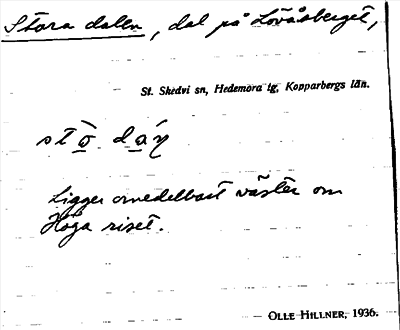 Stora dalen, dal på Lövåsberget,
St. Skedvi sn, Hedemora tg, Kopparbergs län.
Ligger omedelbart väster om
Höga riset.
OLLE HILLNER, 1936.